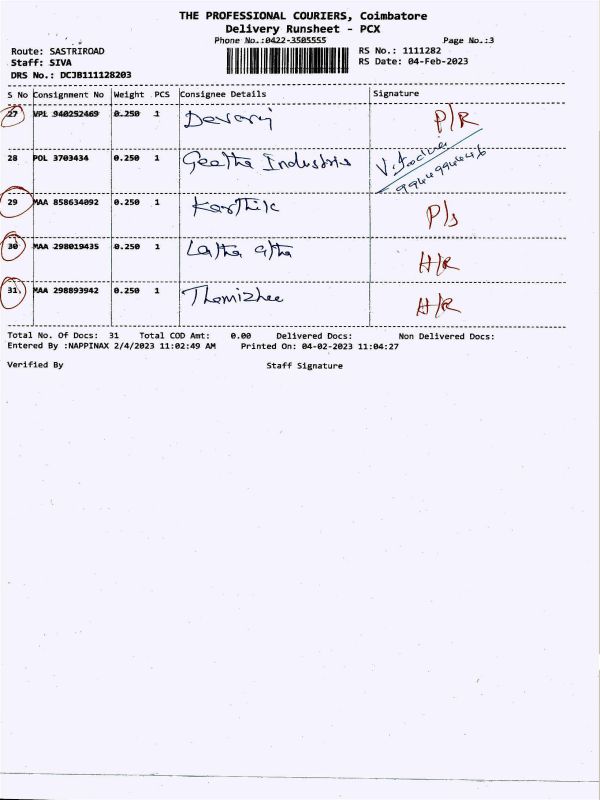 THE PROFESSIONAL COURIERS, Coimbatore
Delivery Runsheet - PCX
Phone No.:0422-3505555 Page No.:3
Route: SASTRIROAD RS No.: 1111282
Staff: SIVA RS Date: 04-Feb-2023
DRS No.: DCJB111128203
S No Consignment No Weight PCS Consignee Details Signature
27 VPL 940252469 0.250 1 Devaraj P/R
28 POL 3703434 0.250 1 Geetha Industries
29 MAA 858634092 0.250 1 Karthik P/s
30 MAA 298019435 0.250 1 Latha H/R
31 MAA 298893942 0.250 1 H/R
Total No. Of Docs: 31 Total COD Amt: 0.00 Delivered Docs: Non Delivered Docs:
Entered By :NAPPINAX 2/4/2023 11:02:49 AM Printed On: 04-02-2023 11:04:27
Verified By Staff Signature